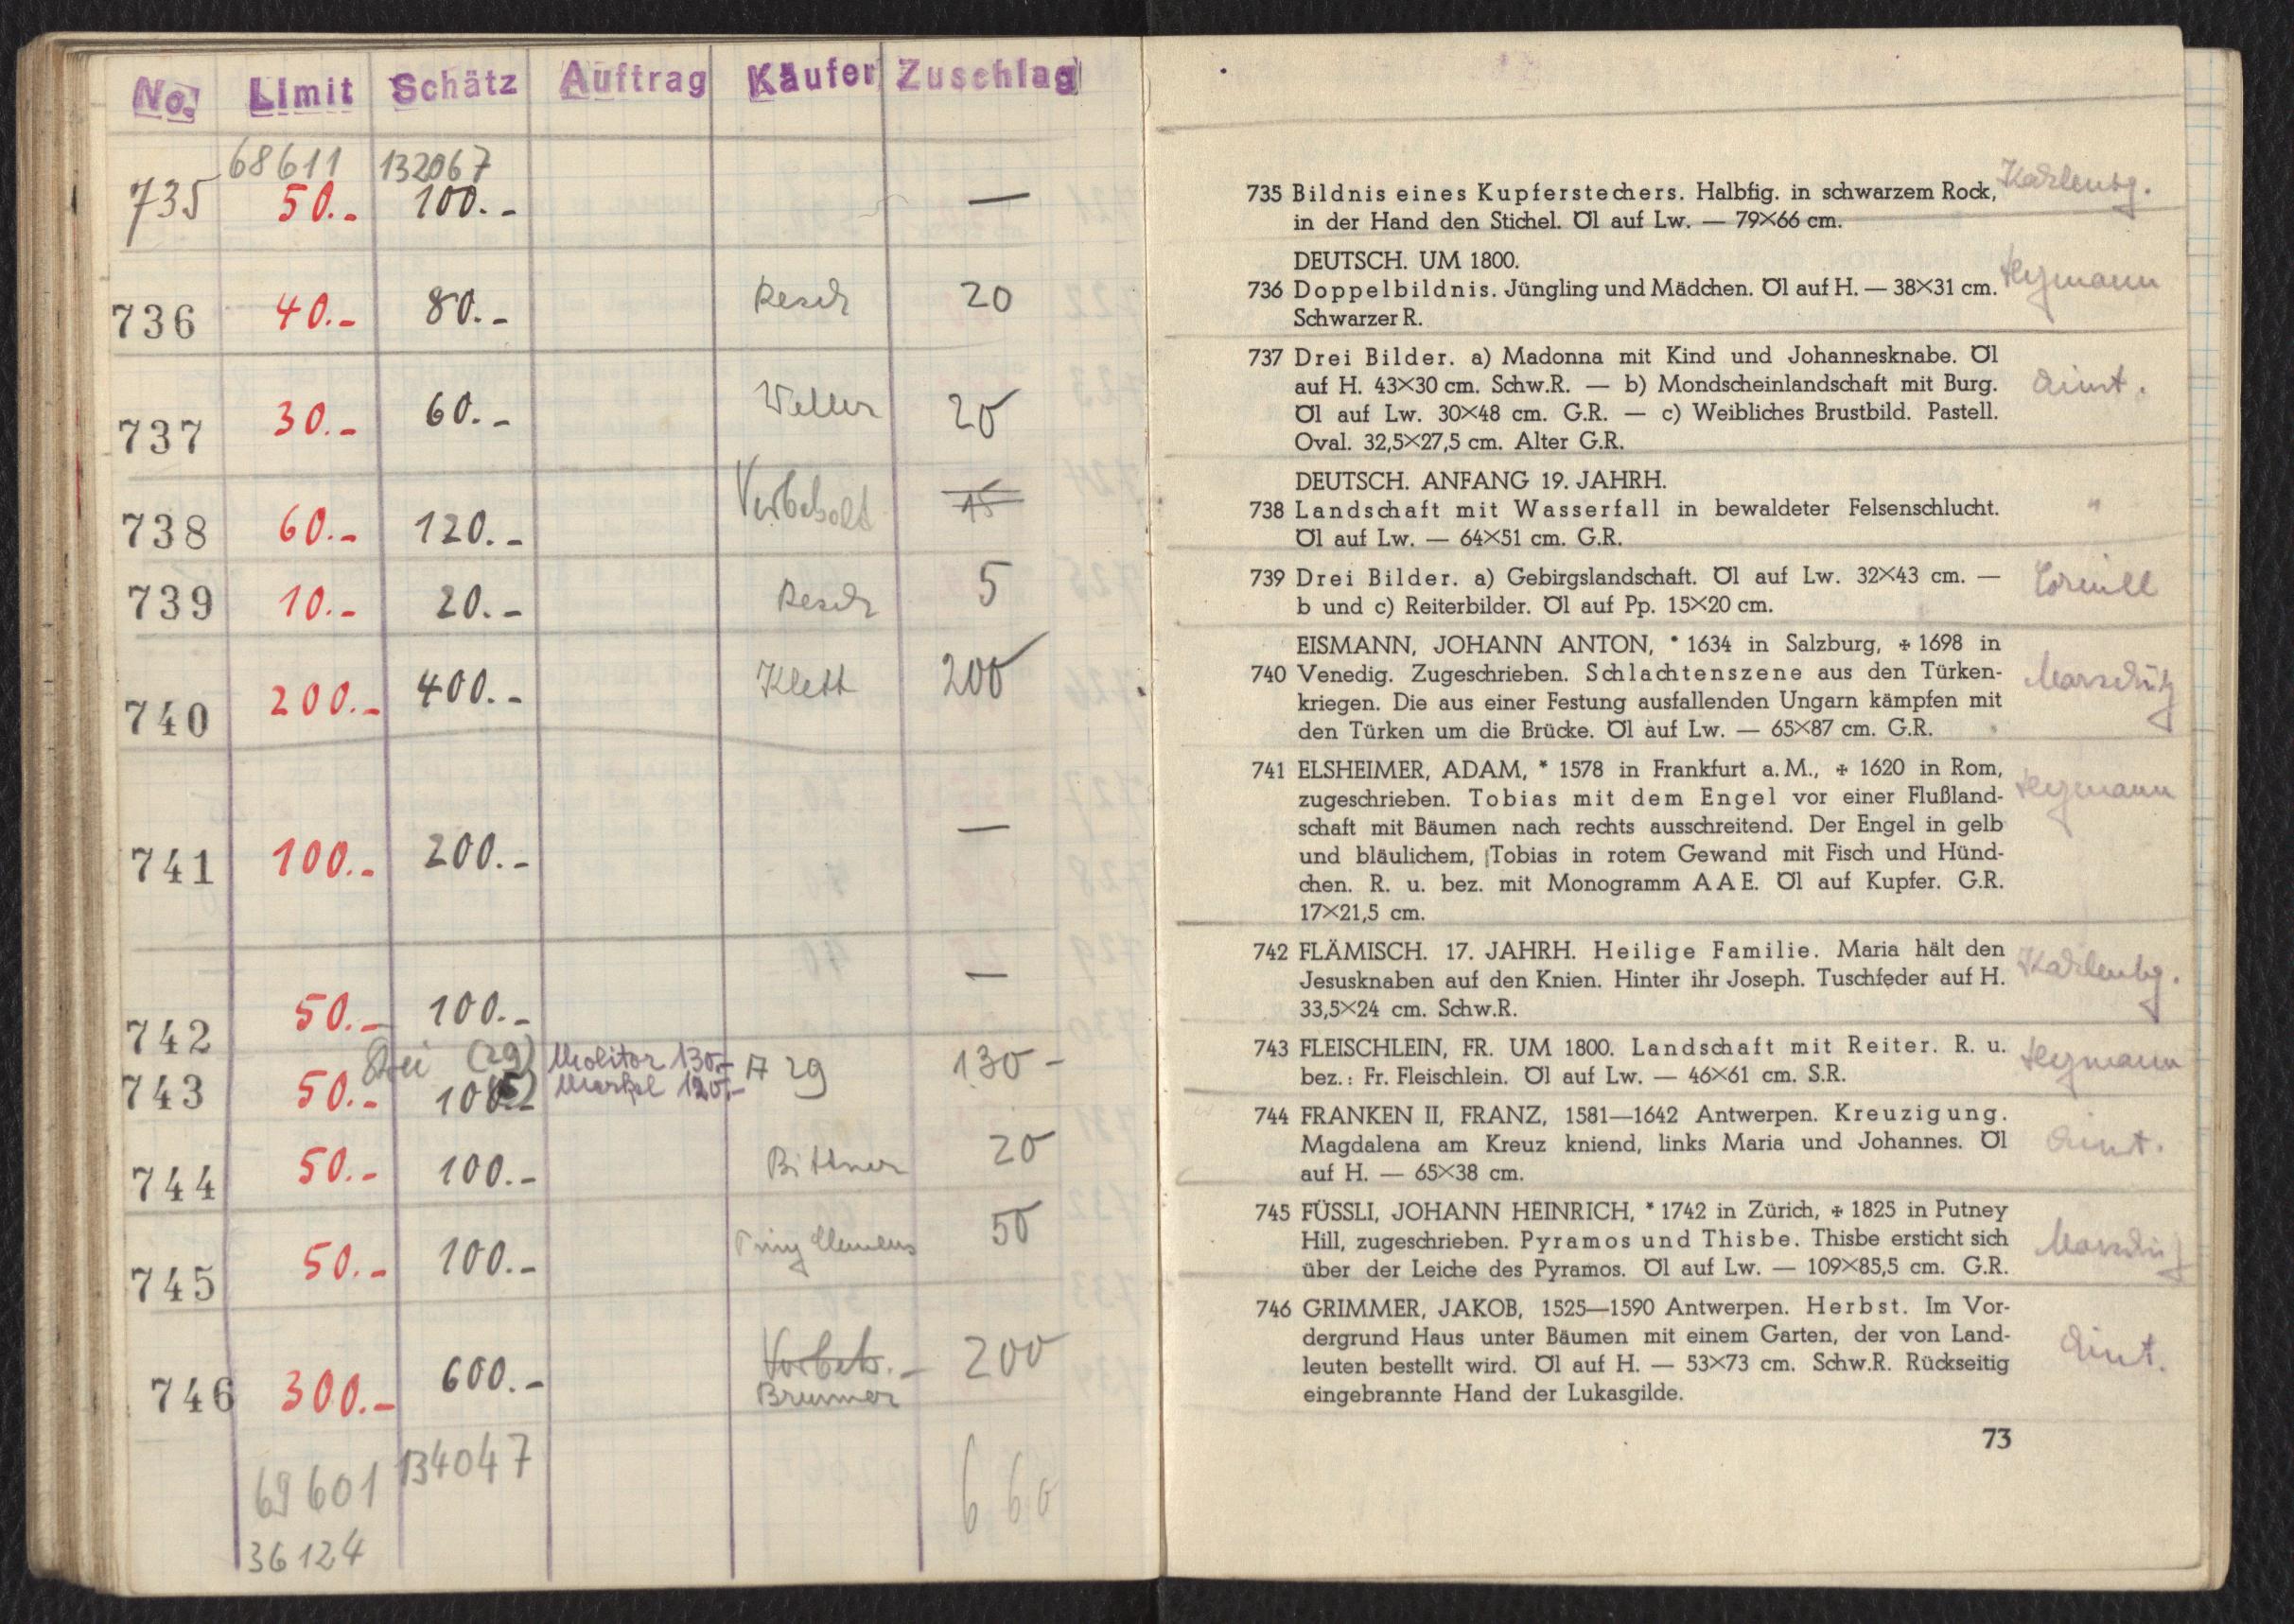 No. Limit Schätz Auftrag Käufer Zuschlag
68611 132067
735 50.- 100.- —
736 40.- 80.- Resch 20
737 30.- 60.- Weller 20
738 60.- 120.- 15
739 10.- 20.- Resch 5
740 200.- 400.- Klett 200
741 100.- 200.- —
742 50.- 100.- —
(29) Molitor 130.-
743 50.- 100.- 120.- A 29 130-
744 50.- 100.- Bittner 20
745 50.- 100.- 50
746 300.- 600.- Vorbeh. - 200
Brunner
69601 134047 660
36124
735 Bildnis eines Kupferstechers. Halbfig. in schwarzem Rock,
in der Hand den Stichel. Öl auf Lw. — 79×66 cm.
DEUTSCH. UM 1800.
736 Doppelbildnis. Jüngling und Mädchen. Öl auf H. — 38×31 cm.
Schwarzer R.
Heymann
737 Drei Bilder. a) Madonna mit Kind und Johannesknabe. Öl
auf H. 43×30 cm. Schw.R. — b) Mondscheinlandschaft mit Burg.
Öl auf Lw. 30×48 cm. G.R. — c) Weibliches Brustbild. Pastell.
Oval. 32,5×27,5 cm. Alter G.R.
DEUTSCH. ANFANG 19. JAHRH.
738 Landschaft mit Wasserfall in bewaldeter Felsenschlucht.
Öl auf Lw. — 64×51 cm. G.R.
"
739 Drei Bilder. a) Gebirgslandschaft. Öl auf Lw. 32×43 cm. —
b und c) Reiterbilder. Öl auf Pp. 15×20 cm.
EISMANN, JOHANN ANTON, * 1634 in Salzburg, ✠ 1698 in
740 Venedig. Zugeschrieben. Schlachtenszene aus den Türken-
kriegen. Die aus einer Festung ausfallenden Ungarn kämpfen mit
den Türken um die Brücke. Öl auf Lw. — 65×87 cm. G.R.
Marschütz
741 ELSHEIMER, ADAM, * 1578 in Frankfurt a. M., ✠ 1620 in Rom,
zugeschrieben. Tobias mit dem Engel vor einer Flußland-
schaft mit Bäumen nach rechts ausschreitend. Der Engel in gelb
und bläulichem, Tobias in rotem Gewand mit Fisch und Hünd-
chen. R. u. bez. mit Monogramm A A E. Öl auf Kupfer. G.R.
17×21,5 cm.
Heymann
742 FLÄMISCH. 17. JAHRH. Heilige Familie. Maria hält den
Jesusknaben auf den Knien. Hinter ihr Joseph. Tuschfeder auf H.
33,5×24 cm. Schw.R.
743 FLEISCHLEIN, FR. UM 1800. Landschaft mit Reiter. R. u.
bez.: Fr. Fleischlein. Öl auf Lw. — 46×61 cm. S.R.
Heymann
744 FRANKEN II, FRANZ, 1581—1642 Antwerpen. Kreuzigung.
Magdalena am Kreuz kniend, links Maria und Johannes. Öl
auf H. — 65×38 cm.
745 FÜSSLI, JOHANN HEINRICH, * 1742 in Zürich, ✠ 1825 in Putney
Hill, zugeschrieben. Pyramos und Thisbe. Thisbe ersticht sich
über der Leiche des Pyramos. Öl auf Lw. — 109×85,5 cm. G.R.
Marschütz
746 GRIMMER, JAKOB, 1525—1590 Antwerpen. Herbst. Im Vor-
dergrund Haus unter Bäumen mit einem Garten, der von Land-
leuten bestellt wird. Öl auf H. — 53×73 cm. Schw.R. Rückseitig
eingebrannte Hand der Lukasgilde.
73